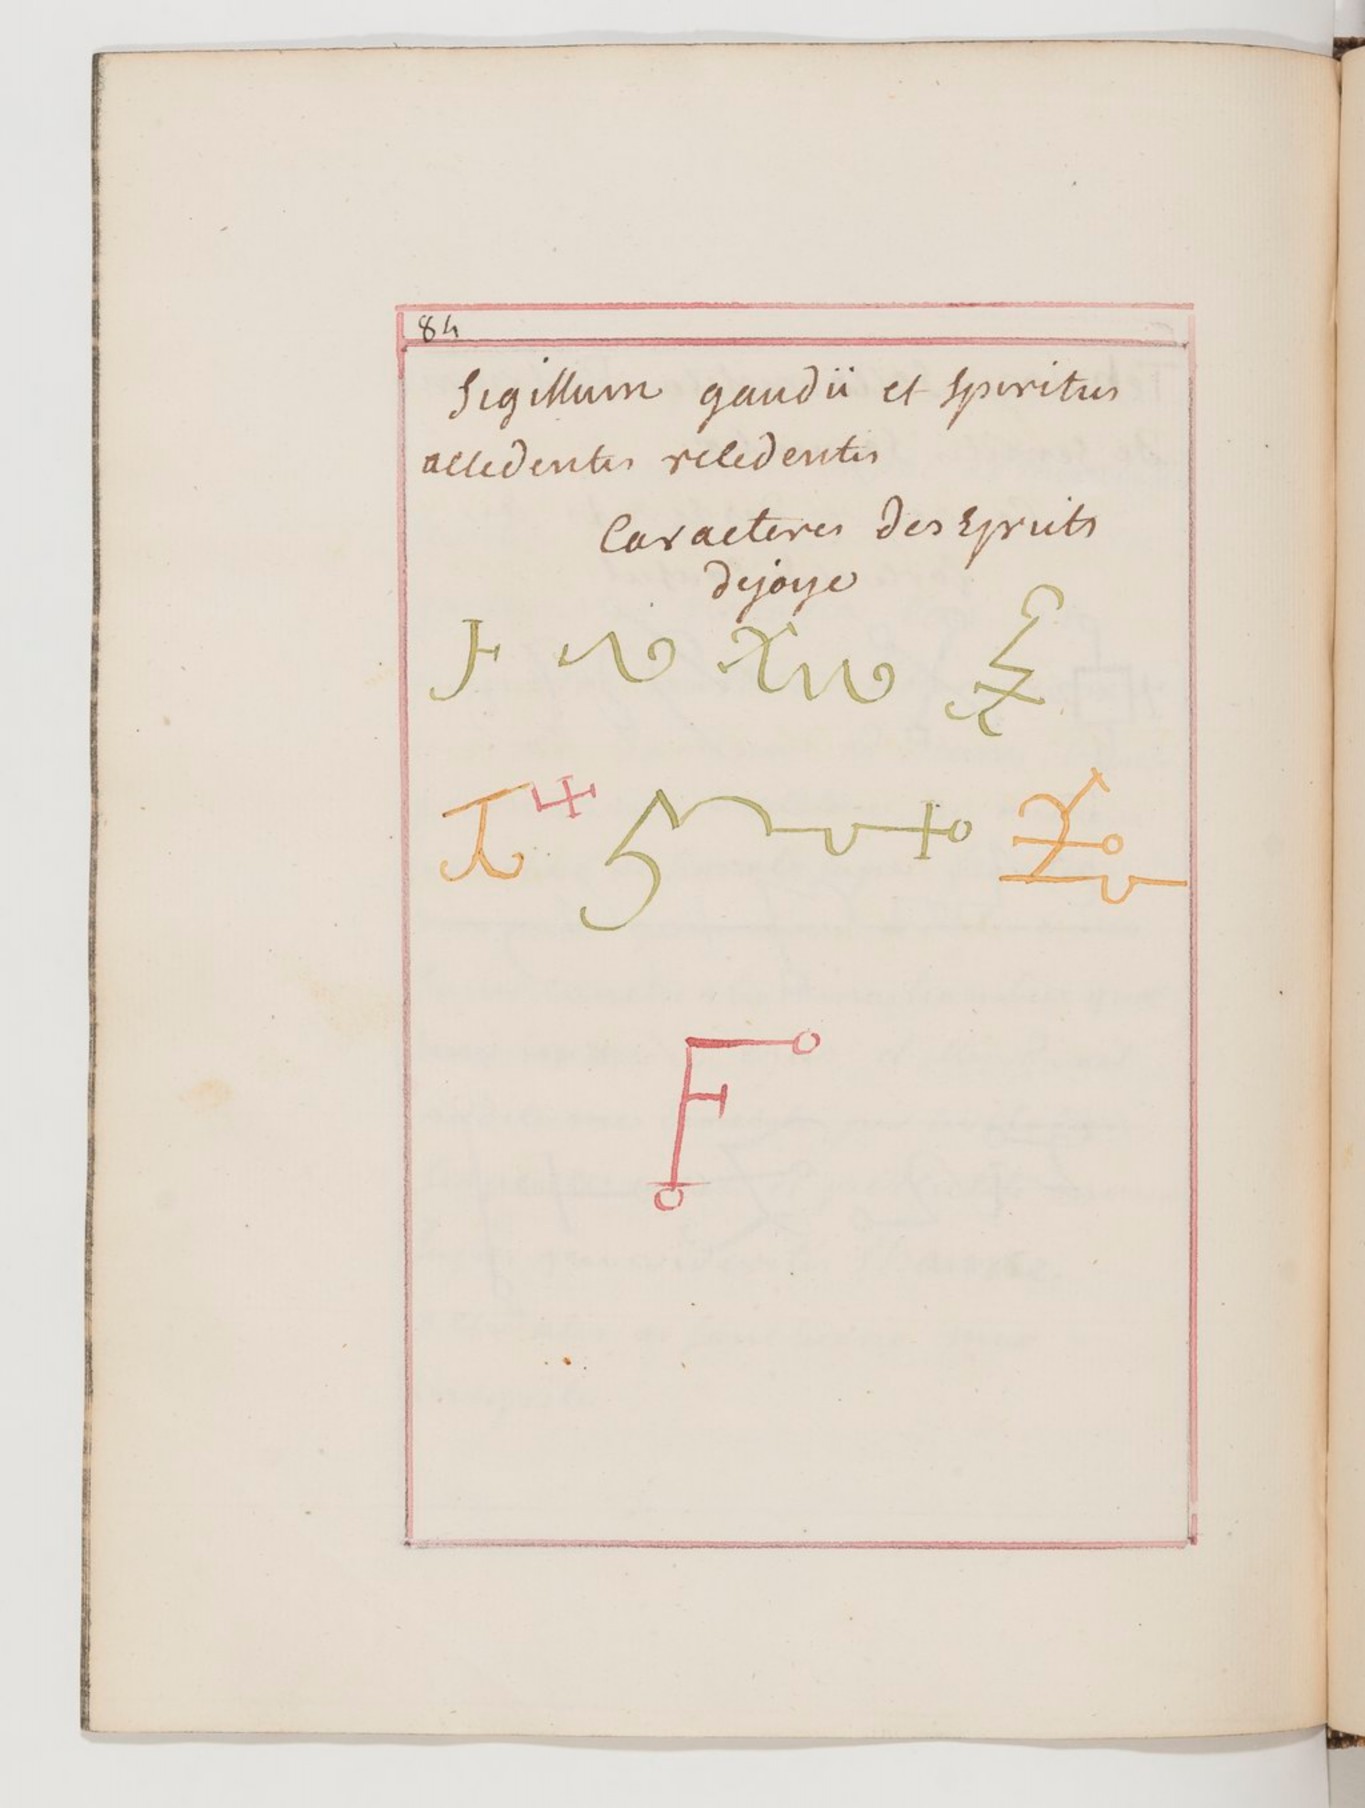 84
Sigillum gaudii et Spiritus
accedentes recedentes
Caracteres des Esprits
de joye